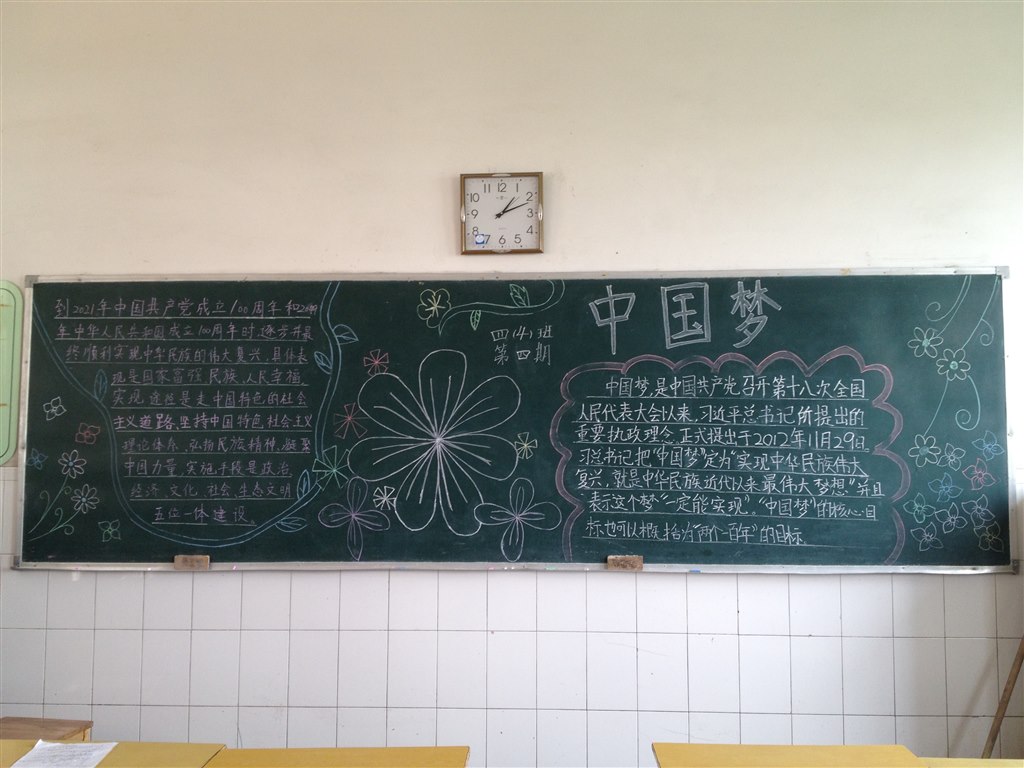 11 12 1
10 2
9 3
8 4
7 6 5
到2021年中国共产党成立100周年和2049
年中华人民共和国成立100周年时逐步并最
终顺利实现中华民族的伟大复兴,具体表
现是国家富强,民族,人民幸福,
实现途径是走中国特色的社会
主义道路,坚持中国特色社会主义
理论体系,弘扬民族精神,凝聚
中国力量,实施手段是政治,
经济,文化,社会,生态文明
五位一体建设。
四(4)班
第四期
中国梦
中国梦,是中国共产党召开第十八次全国
人民代表大会以来,习近平总书记所提出的
重要执政理念,正式提出于2012年11月29日。
习总书记把“中国梦”定为“实现中华民族伟大
复兴,就是中华民族近代以来最伟大梦想”并且
表示这个梦“一定能实现”。“中国梦”的核心目
标也可以概括为“两个一百年”的目标.